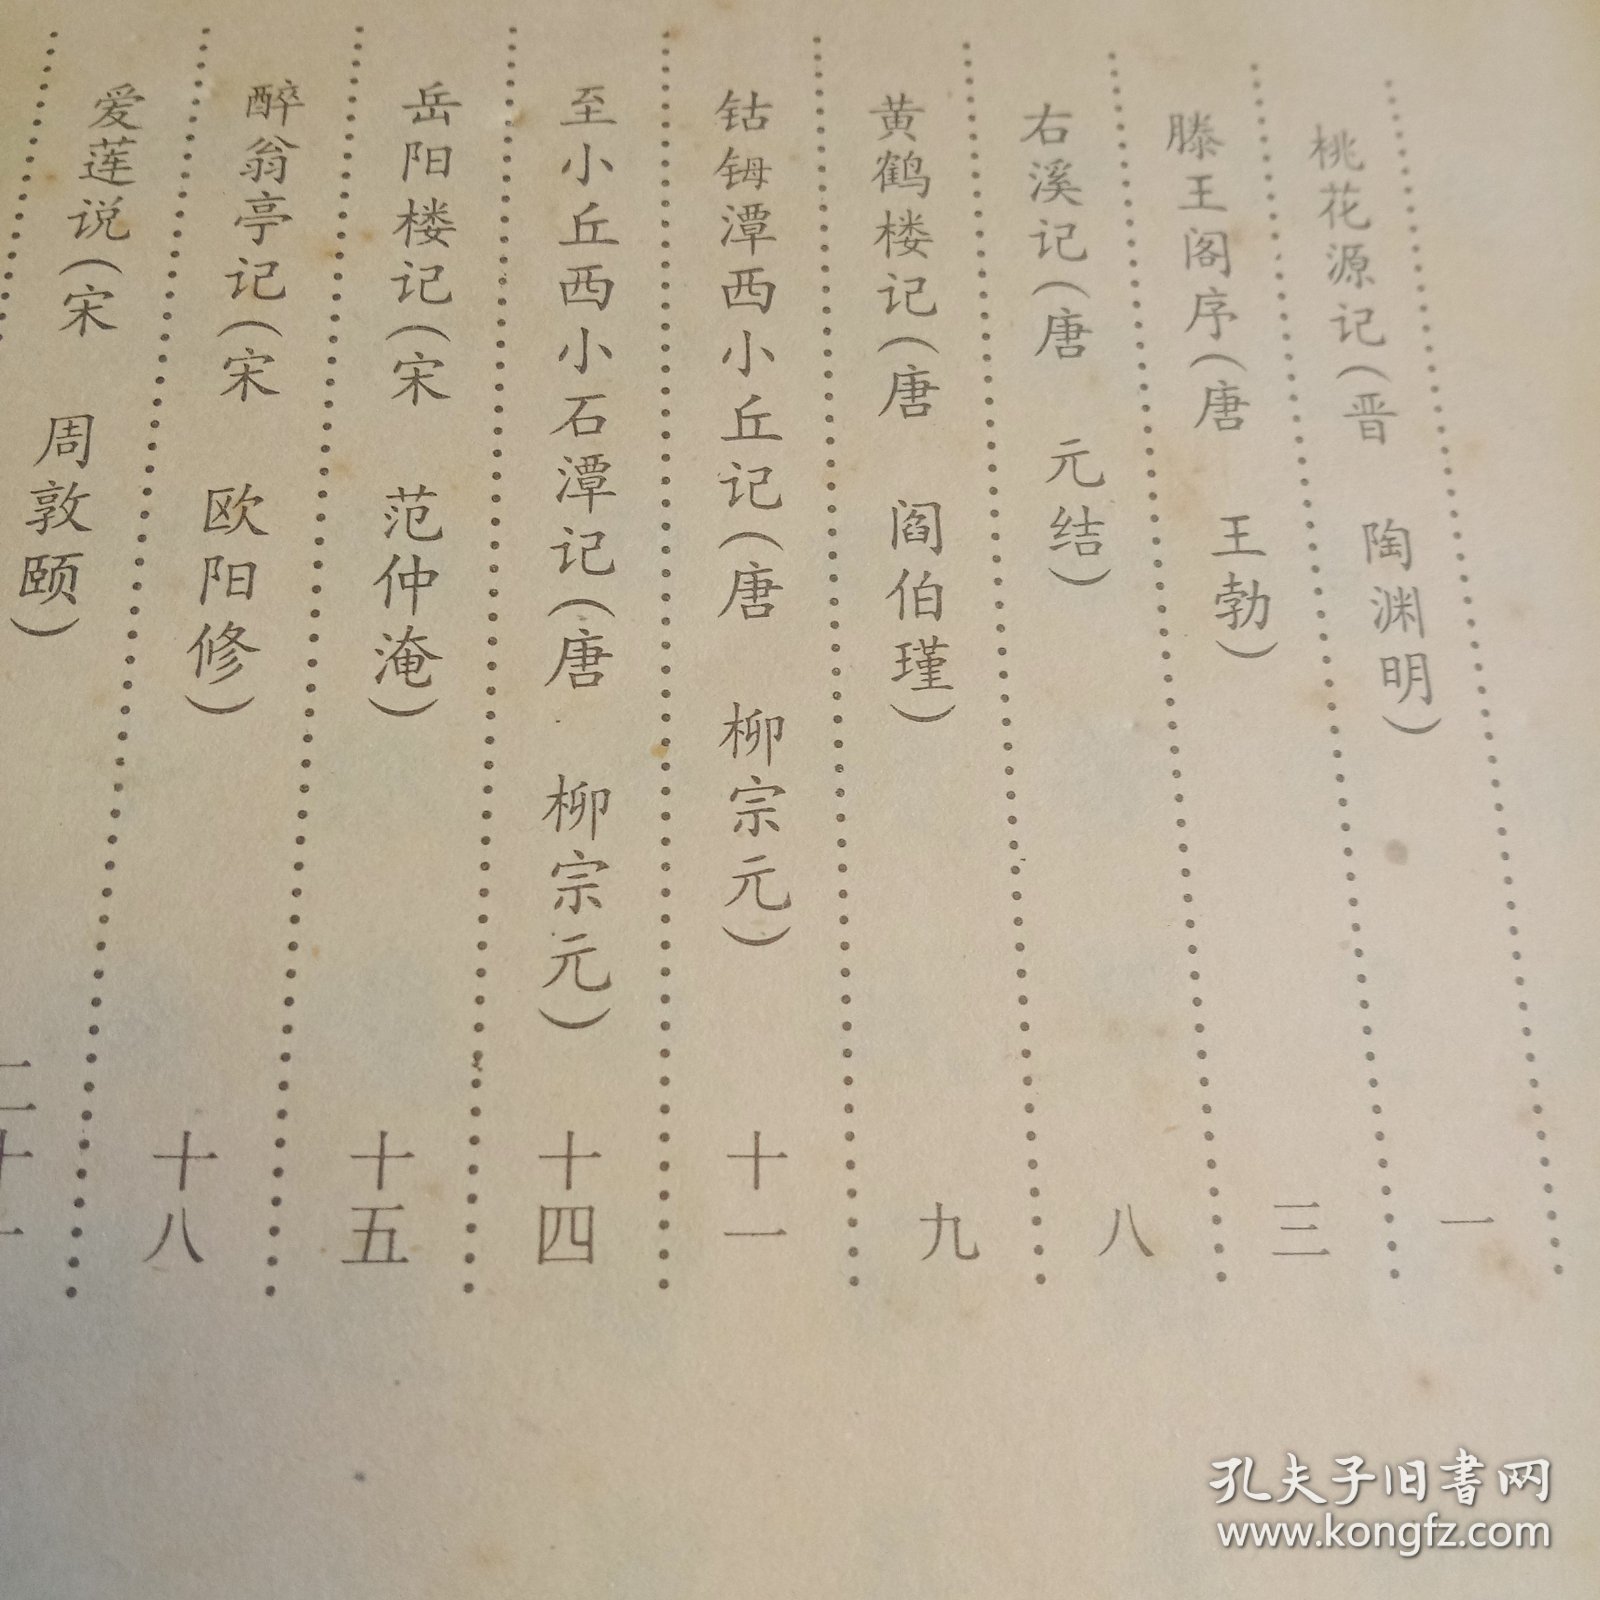 桃花源记（晋 陶渊明） 一
滕王阁序（唐 王勃） 三
右溪记（唐 元结） 八
黄鹤楼记（唐 阎伯瑾） 九
钴鉧潭西小丘记（唐 柳宗元） 十一
至小丘西小石潭记（唐 柳宗元） 十四
岳阳楼记（宋 范仲淹） 十五
醉翁亭记（宋 欧阳修） 十八
爱莲说（宋 周敦颐） 二十一
孔夫子旧书网
www.kongfz.com